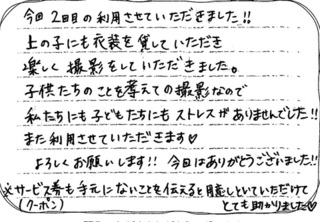 今回2回目の利用させていただきました!!
上の子にも衣装を貸していただき
楽しく撮影をしていただきました。
子供たちのことを考えての撮影なので
私たちにも子どもたちにもストレスがありませんでした!!
また利用させていただきます♡
よろしくお願いします!! 今日はありがとうございました!!
※サービス券も手元にないことを伝えると用意しといていただけて
(クーポン) とても助かりました♡